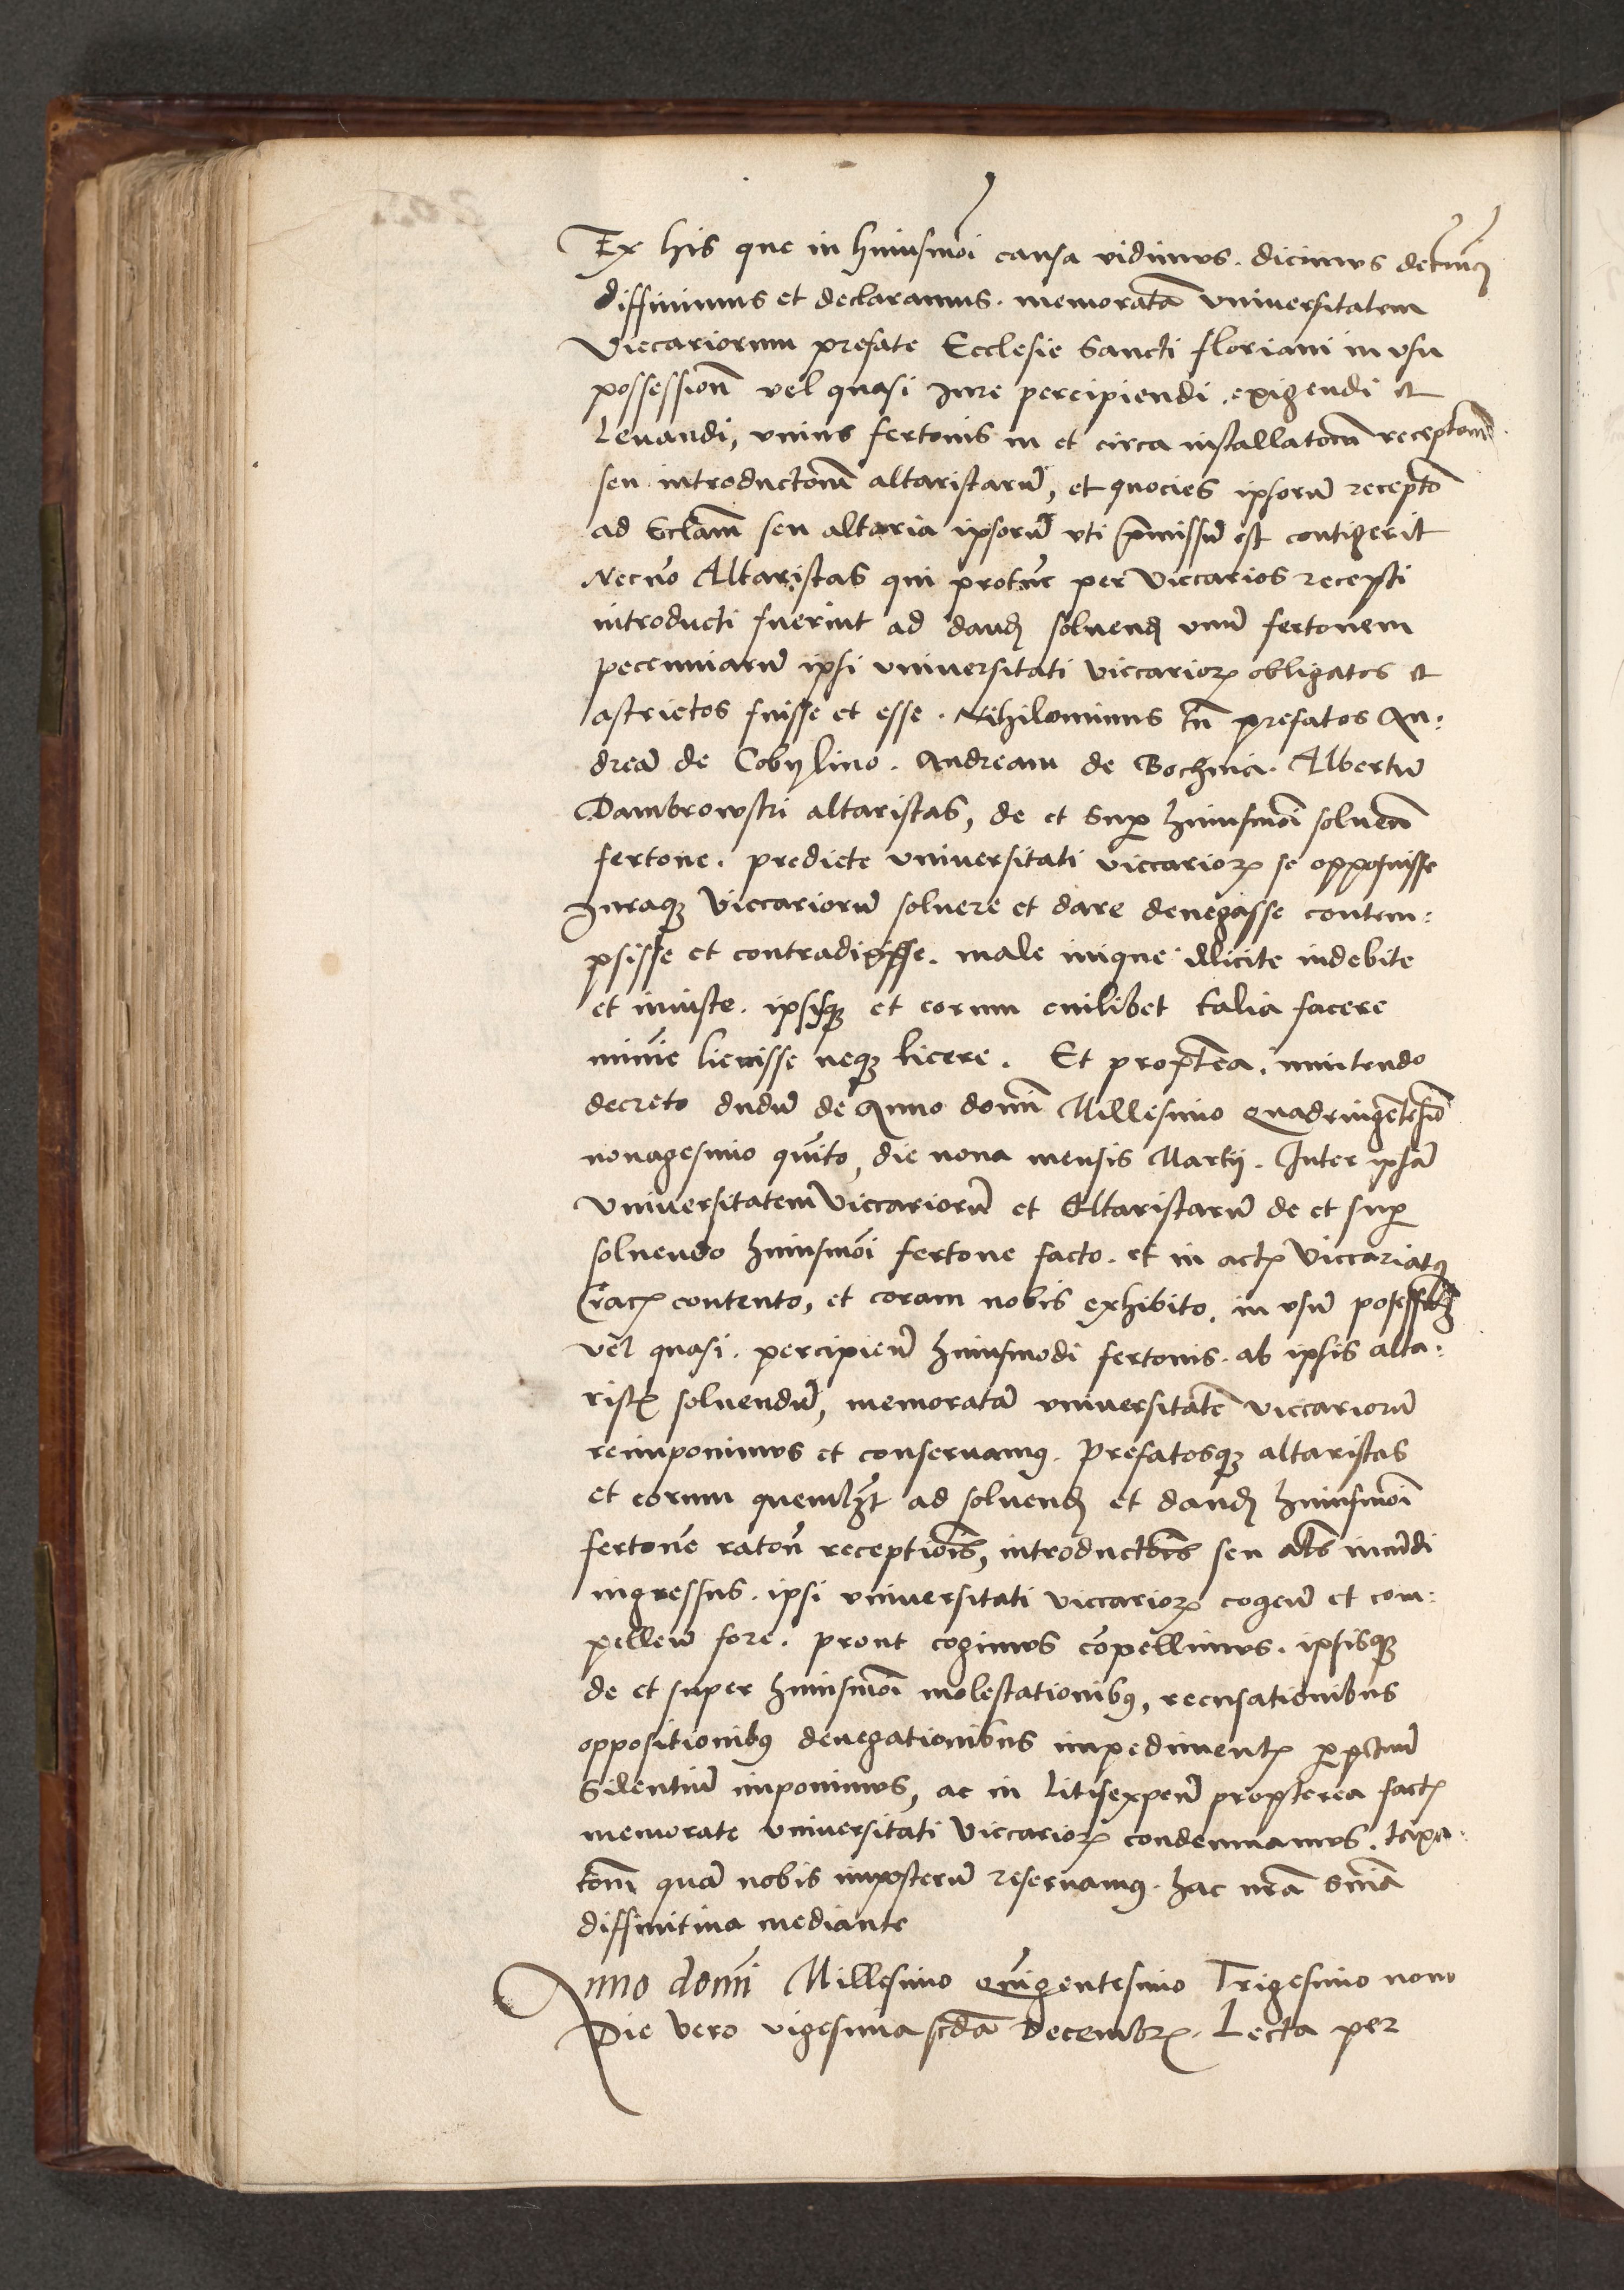 Ex his que in huiusmõi causa vidimus. dicimus
diffinimus et declaramus. memoratã vniuersitatem
Viccariorum prefate Ecclesie Sancti floriani in vsu
possessioñ vel quasi Jure percipiendi. exigendi et
leuandi, vnius fertonis in et circa installatom̃ receptom̃
seu introductom̃ altaristarũ, et quocies ipsorũ recepto
ad Eccłam seu altaria ipsorũ vti p̃missũ est contigerit
Necnõ Altaristas qui protũc per Viccarios recepti
introducti fuerint ad dand soluend vnũ fertonem
pecuniarũ ipsi vniuersitati viccarioꝝ obligatos et
astrictos fuisse et esse. Nihilominus tñ prefatos An:
dreã de Cobylino. Andream de Bochnia. Albertũ
Dambrowski altaristas, de et sup huiusmõi soluen̄
fertone. predicte vniuersitati viccarioꝝ se opposuisse
Juraqꝫ Viccariorũ soluere et dare denegasse contem:
psisse et contradixisse. male inique illicite indebite
et iniuste. ipsisqꝫ et eorum cuilibet talia facere
minime licuisse neqꝫ licere. Et propt̃ea. innitendo
decreto dudũ de Anno domĩ Millesimo Quadringẽtesĩo
nonagesimo quĩto, die nona mensis Martij. Inter ipsã
vniuersitatem Viccariorũ et Altaristarũ de et sup
soluendo huiusmõi fertone facto. et in actꝭ Viccariatꝰ
Cracꝭ contento, et coram nobis exhibito, in vsũ
vel quasi. percipieñ huiusmodi fertonis. ab ipsis alta:
ristꝭ soluendũ, memoratã vniuersitatẽ viccariorũ
reimponimus et conseruamꝰ. Prefatosqꝫ altaristas
et eorum quemlꝫt ad soluend et dand huiusmõi
fertonẽ ratoñ receptiois, introductois seu als
ingressus. ipsi vniuersitati viccarioꝝ cogeñ et com:
pelleñ fore. prout cogimus cõpellimus. ipsisqꝫ
de et super huiusmõi molestationibꝰ, recusationibus
oppositionibꝰ denegationibus impedimentꝭ ꝑpetuũ
Silentiũ imponimus, ac in litisexpeñ propterea factꝭ
memorate vniuersitati Viccarioꝝ condemnamus. taxa:
tom̃ quã nobis imposterũ reseruamꝰ. hac nr̃a sñia
diffinitiua mediante
Anno domĩ Millesimo Quĩgentesimo Trigesimo nono
Die vero vigesima scdã Decembrꝭ. Lecta per